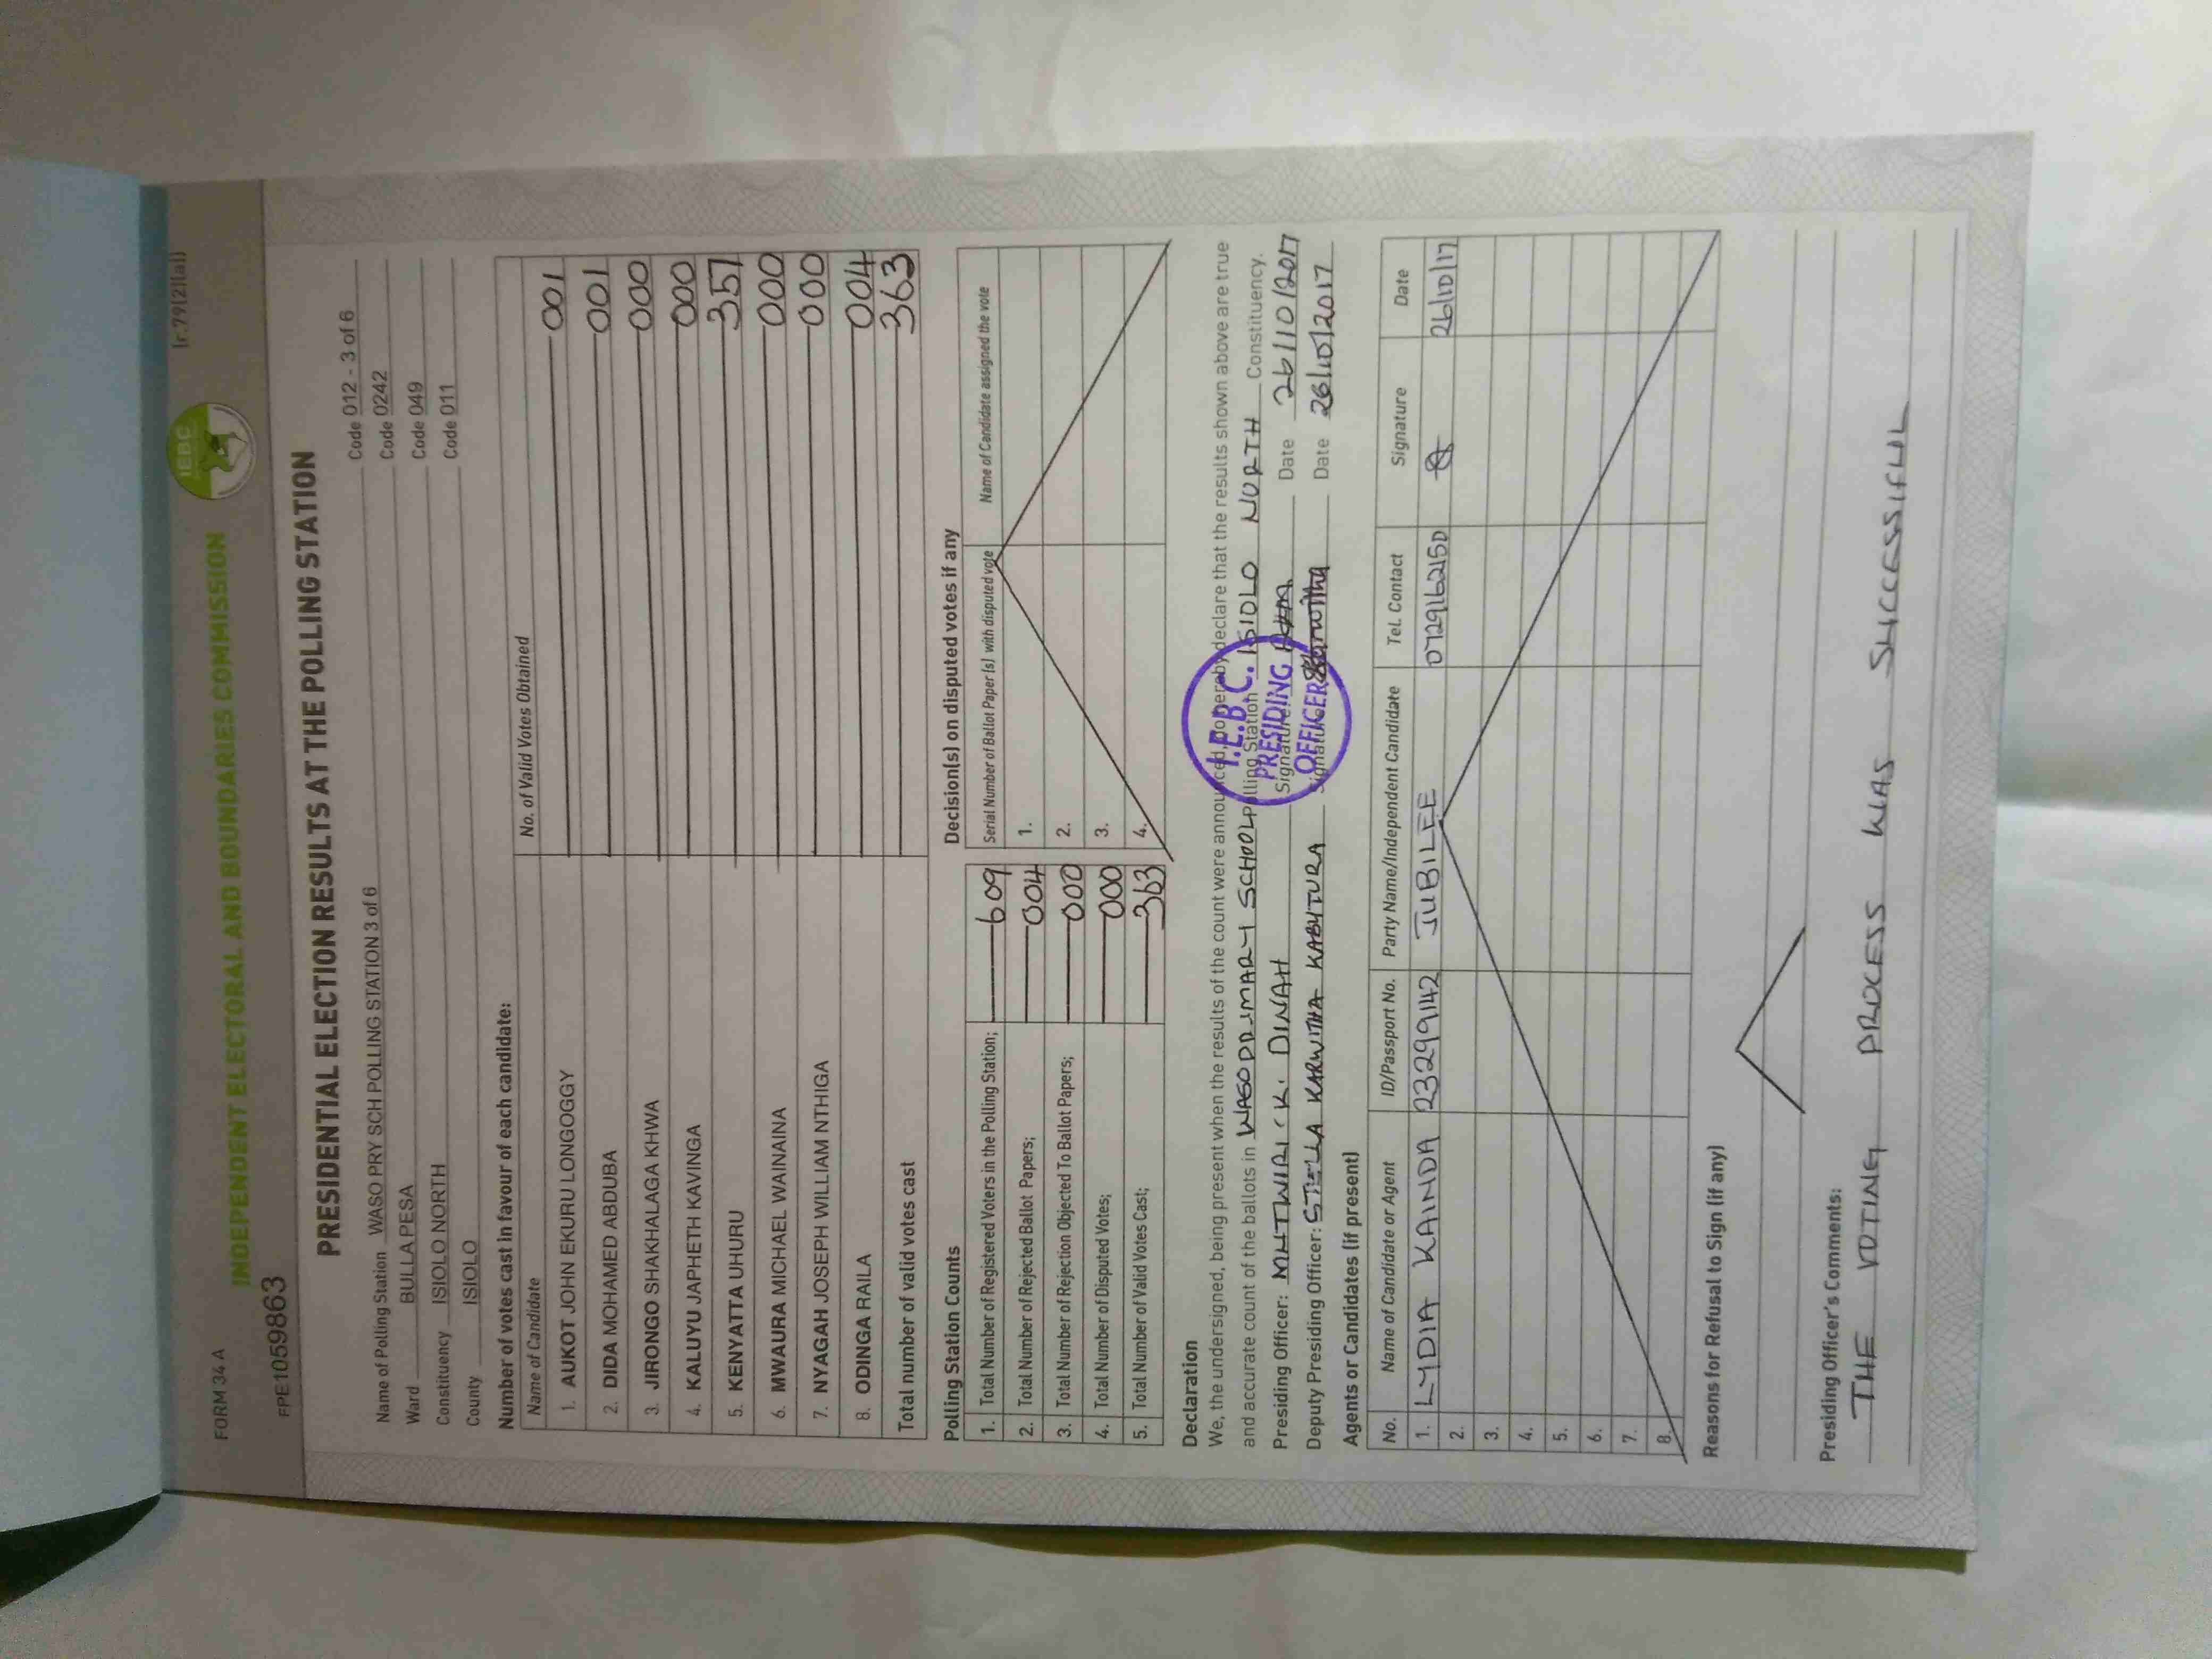 FORM 34 A
(r.79(2)(a))
INDEPENDENT ELECTORAL AND BOUNDARIES COMMISSION
IEBC
FPE1059863
PRESIDENTIAL ELECTION RESULTS AT THE POLLING STATION
Name of Polling Station WASO PRY SCH POLLING STATION 3 of 6 Code 012 - 3 of 6
Ward BULLA PESA Code 0242
Constituency ISIOLO NORTH Code 049
County ISIOLO Code 011
Number of votes cast in favour of each candidate:
Name of Candidate No. of Valid Votes Obtained
1. AUKOT JOHN EKURU LONGOGGY 001
2. DIDA MOHAMED ABDUBA 001
3. JIRONGO SHAKHALAGA KHWA 000
4. KALUYU JAPHETH KAVINGA 000
5. KENYATTA UHURU 357
6. MWAURA MICHAEL WAINAINA 000
7. NYAGAH JOSEPH WILLIAM NTHIGA 000
8. ODINGA RAILA 004
Total number of valid votes cast 363
Polling Station Counts
1. Total Number of Registered Voters in the Polling Station; 609
2. Total Number of Rejected Ballot Papers; 004
3. Total Number of Rejection Objected To Ballot Papers; 000
4. Total Number of Disputed Votes; 000
5. Total Number of Valid Votes Cast; 363
Decision(s) on disputed votes if any
Serial Number of Ballot Paper (s) with disputed vote Name of Candidate assigned the vote
1.
2.
3.
4.
Declaration
We, the undersigned, being present when the results of the count were announced, do hereby declare that the results shown above are true
and accurate count of the ballots in WASO PRIMARY SCHOOL Polling Station ISIOLO NORTH Constituency.
Presiding Officer: MUTWIRI K. DINAH Signature Date 26/10/2017
Deputy Presiding Officer: STELLA KARWITHA KABUTURA Signature Karwitha Date 26/10/2017
I.E.B.C.
PRESIDING
OFFICER
Agents or Candidates (if present)
No. Name of Candidate or Agent ID/Passport No. Party Name/Independent Candidate Tel. Contact Signature Date
1. LYDIA KAINDA 23299142 JUBILEE 0729162150 26/10/17
2.
3.
4.
5.
6.
7.
8.
Reasons for Refusal to Sign (if any)
Presiding Officer's Comments:
THE VOTING PROCESS WAS SUCCESSIFUL